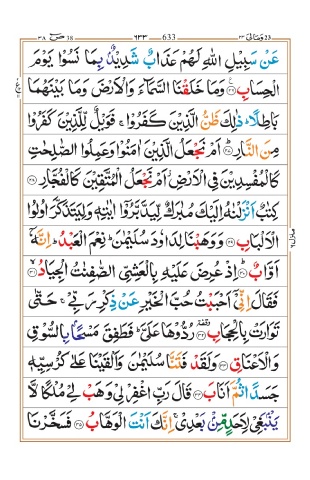 ص ٣٨ ٦٣٣ 633 وما لی ٢٣
عَنْ سَبِيْلِ اللّٰهِ لَهُمْ عَذَابٌ شَدِيْدٌۢ بِمَا نَسُوْا يَوْمَ
الْحِسَابِ ۟﴿۲۶﴾ وَمَا خَلَقْنَا السَّمَآءَ وَالْاَرْضَ وَمَا بَيْنَهُمَا
بَاطِلًا ؕ ذٰلِكَ ظَنُّ الَّذِيْنَ كَفَرُوْا ۚ فَوَيْلٌ لِّلَّذِيْنَ كَفَرُوْا
مِنَ النَّارِ ﴿۲۷﴾ اَمْ نَجْعَلُ الَّذِيْنَ اٰمَنُوْا وَعَمِلُوا الصّٰلِحٰتِ
كَالْمُفْسِدِيْنَ فِي الْاَرْضِ ۫ اَمْ نَجْعَلُ الْمُتَّقِيْنَ كَالْفُجَّارِ ﴿۲۸﴾
كِتٰبٌ اَنْزَلْنٰهُ اِلَيْكَ مُبٰرَكٌ لِّيَدَّبَّرُوْۤا اٰيٰتِهٖ وَلِيَتَذَكَّرَ اُولُوا
الْاَلْبَابِ ﴿۲۹﴾ وَوَهَبْنَا لِدَاوٗدَ سُلَيْمٰنَ ؕ نِعْمَ الْعَبْدُ ؕ اِنَّهٗۤ
اَوَّابٌ ﴿۳۰﴾ اِذْ عُرِضَ عَلَيْهِ بِالْعَشِيِّ الصّٰفِنٰتُ الْجِيَادُ ﴿۳۱﴾
فَقَالَ اِنِّيْۤ اَحْبَبْتُ حُبَّ الْخَيْرِ عَنْ ذِكْرِ رَبِّيْ ۚ حَتّٰى
تَوَارَتْ بِالْحِجَابِ ﴿۳۲﴾ رُدُّوْهَا عَلَيَّ ؕ فَطَفِقَ مَسْحًۢا بِالسُّوْقِ
وَالْاَعْنَاقِ ﴿۳۳﴾ وَلَقَدْ فَتَنَّا سُلَيْمٰنَ وَاَلْقَيْنَا عَلٰى كُرْسِيِّهٖ
جَسَدًا ثُمَّ اَنَابَ ﴿۳۴﴾ قَالَ رَبِّ اغْفِرْ لِيْ وَهَبْ لِيْ مُلْكًا لَّا
يَنْۢبَغِيْ لِاَحَدٍ مِّنْۢ بَعْدِيْ ۚ اِنَّكَ اَنْتَ الْوَهَّابُ ﴿۳۵﴾ فَسَخَّرْنَا